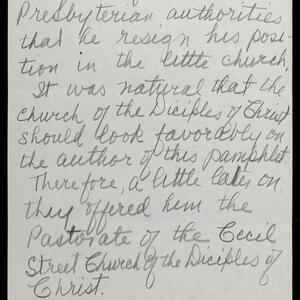 Presbyterian authorities
that he resign his posi-
tion in the little church.
It was natural that the
church of the Diciples of Christ
should look favorably on
the author of this pamphlet.
Therefore, a little later on
they offered him the
Pastorate of the Cecil
Street Church of the Disciples of
Christ.